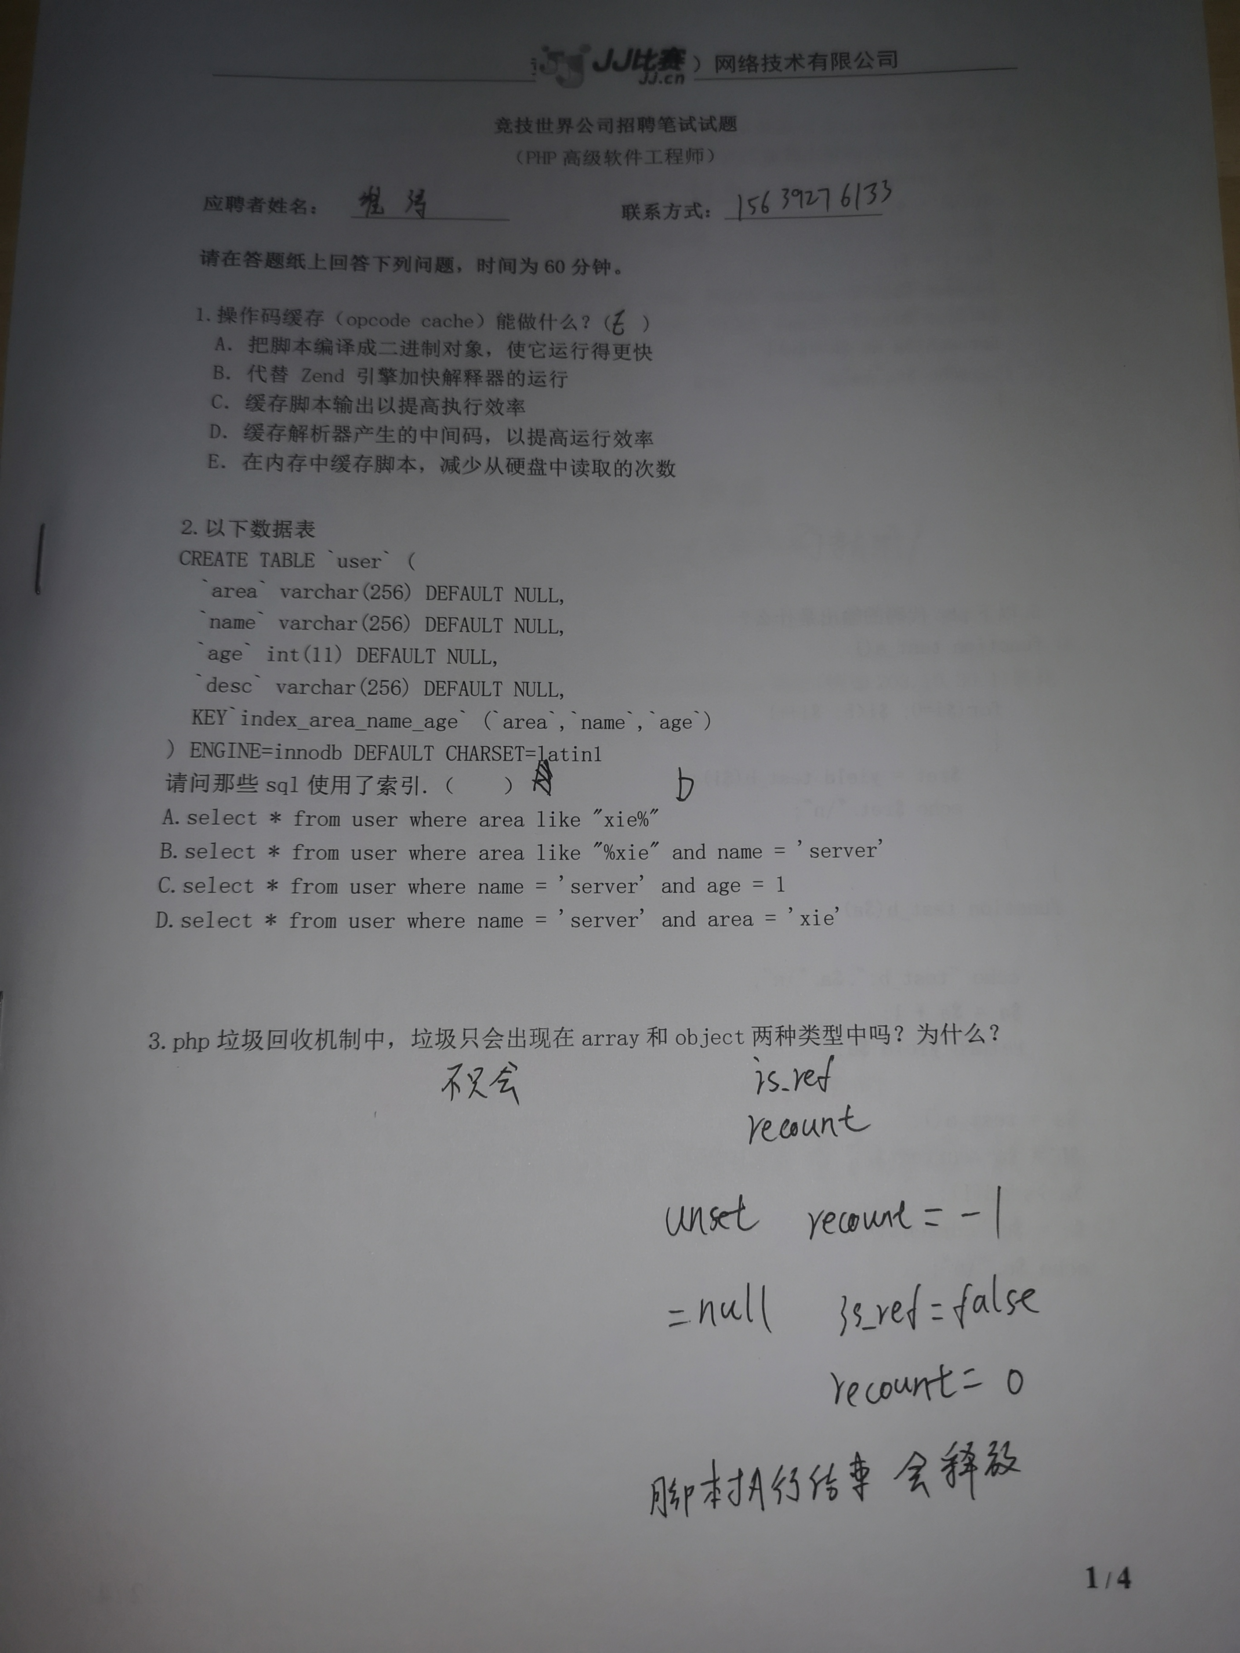 JJ比赛 ）网络技术有限公司
JJ.cn
竞技世界公司招聘笔试试题
（PHP 高级软件工程师）
应聘者姓名： 联系方式：15639276133
请在答题纸上回答下列问题，时间为 60 分钟。
1. 操作码缓存（opcode cache）能做什么？（E ）
A. 把脚本编译成二进制对象，使它运行得更快
B. 代替 Zend 引擎加快解释器的运行
C. 缓存脚本输出以提高执行效率
D. 缓存解析器产生的中间码，以提高运行效率
E. 在内存中缓存脚本，减少从硬盘中读取的次数
2. 以下数据表
CREATE TABLE `user` (
`area` varchar(256) DEFAULT NULL,
`name` varchar(256) DEFAULT NULL,
`age` int(11) DEFAULT NULL,
`desc` varchar(256) DEFAULT NULL,
KEY`index_area_name_age` (`area`,`name`,`age`)
) ENGINE=innodb DEFAULT CHARSET=latin1
请问那些 sql 使用了索引.（ ） D
A. select * from user where area like "xie%"
B. select * from user where area like "%xie" and name = 'server'
C. select * from user where name = 'server' and age = 1
D. select * from user where name = 'server' and area = 'xie'
3. php 垃圾回收机制中，垃圾只会出现在 array 和 object 两种类型中吗？为什么？
不只会 is_ref
recount
unset recount = -1
=null is_ref = false
recount = 0
脚本执行结束 会释放
1 / 4